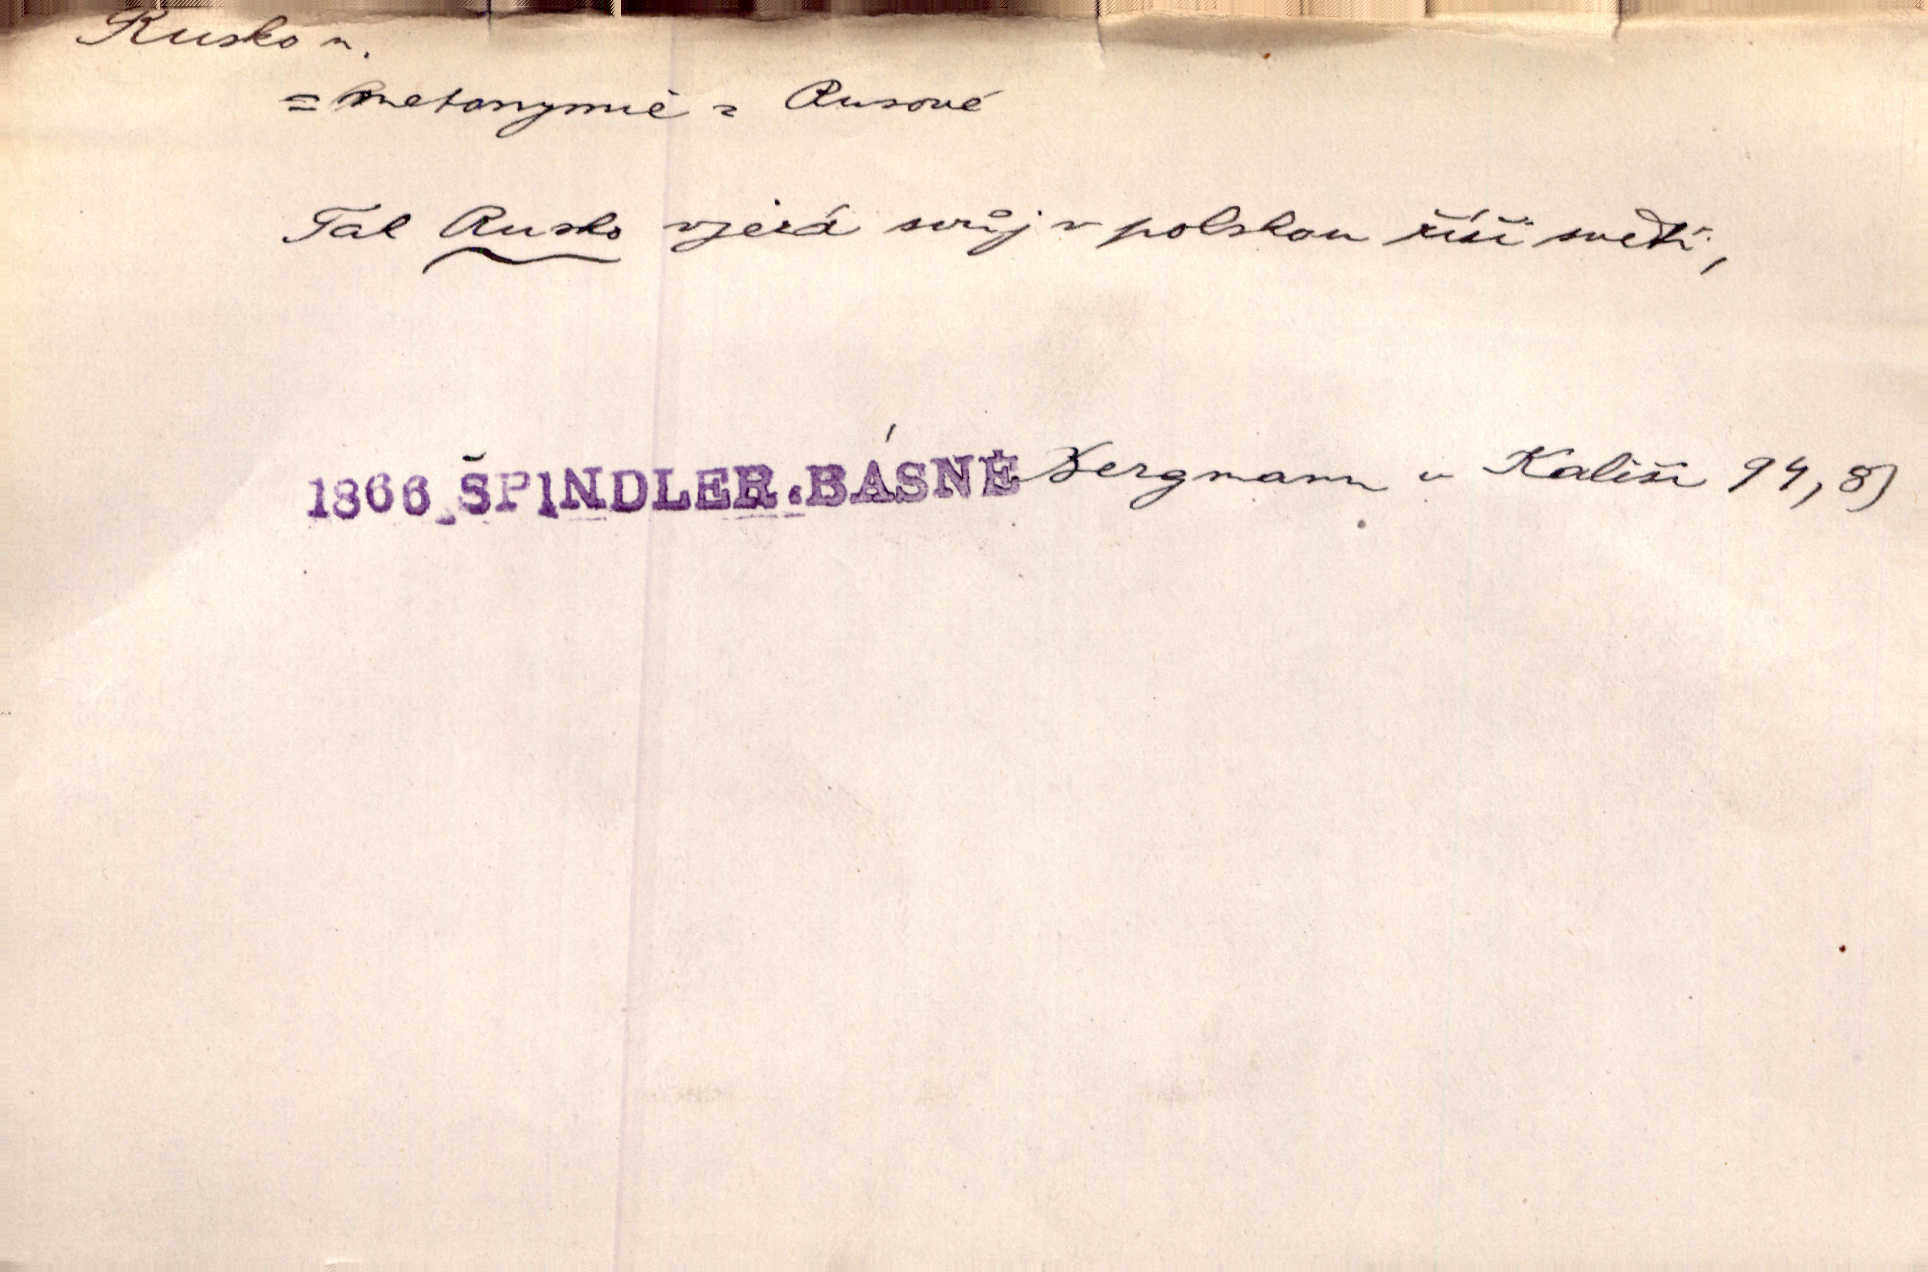 Rusko n.
= metonymie = Rusové
Tak Rusko vjerá svůj v polskou říši svěží,
1866 ŠPINDLER.BÁSNĚ Bergmann v Kališi 94, 8)